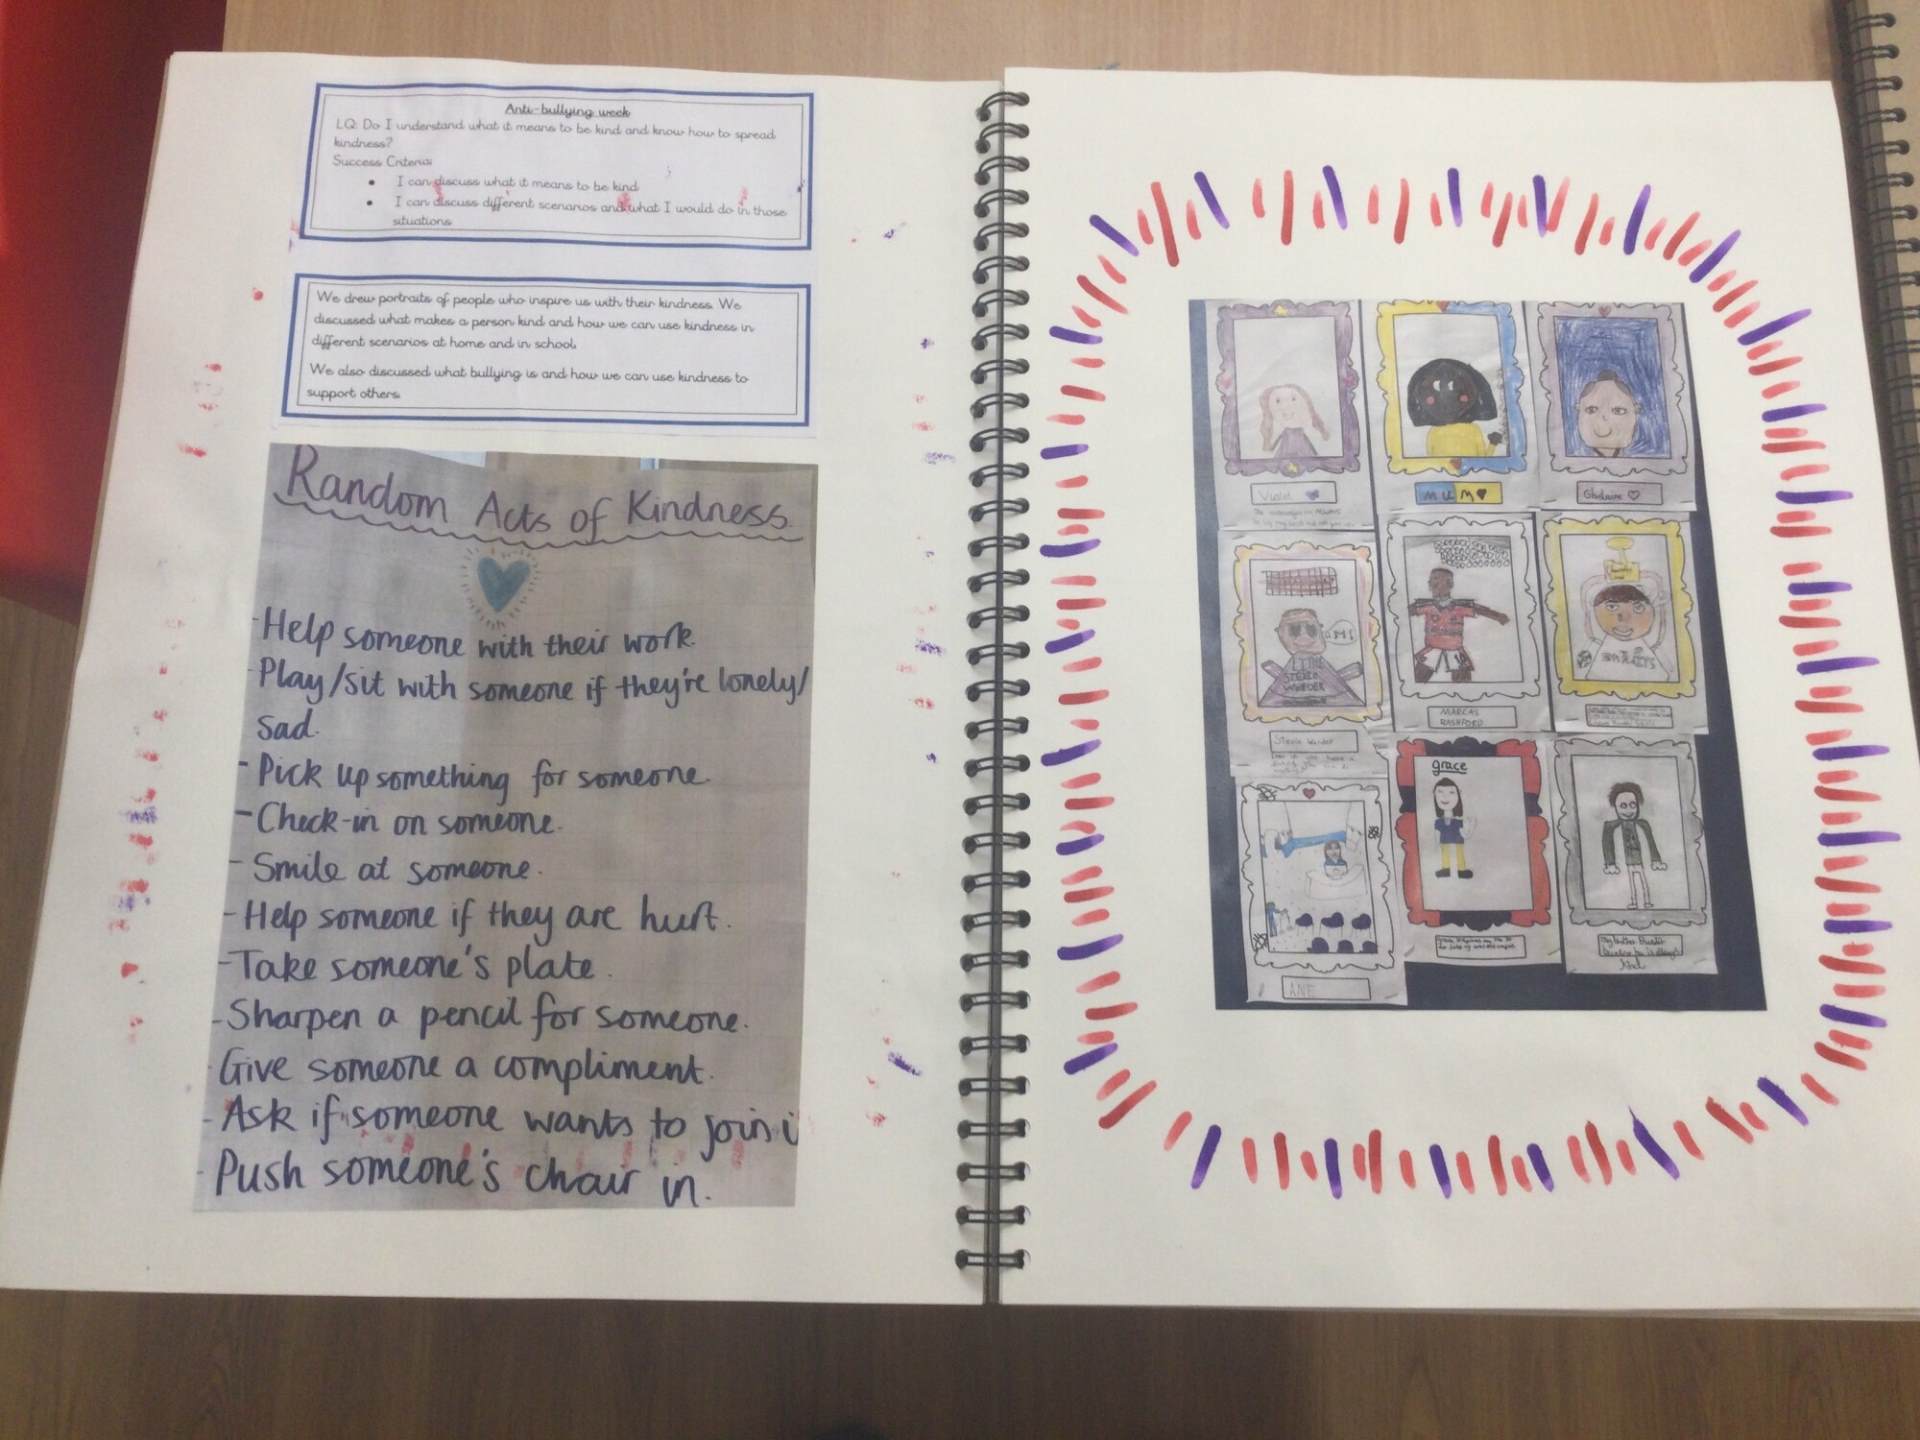 Anti-bullying week
LQ: Do I understand what it means to be kind and know how to spread
kindness?
Success Criteria:
• I can discuss what it means to be kind
• I can discuss different scenarios and what I would do in those
situations.
We drew portraits of people who inspire us with their kindness. We
discussed what makes a person kind and how we can use kindness in
different scenarios at home and in school.
We also discussed what bullying is and how we can use kindness to
support others.
Random Acts of Kindness.
- Help someone with their work.
- Play/sit with someone if they're lonely/
sad.
- Pick up something for someone.
- Check-in on someone.
- Smile at someone.
- Help someone if they are hurt.
- Take someone's plate.
- Sharpen a pencil for someone.
Give someone a compliment.
- Ask if someone wants to join i
- Push someone's chair in.
Violet
MUM
Ghislaine
STEVIE
WONDER
Stevie Wonder
MARCAS
RASHFORD
grace
My brother